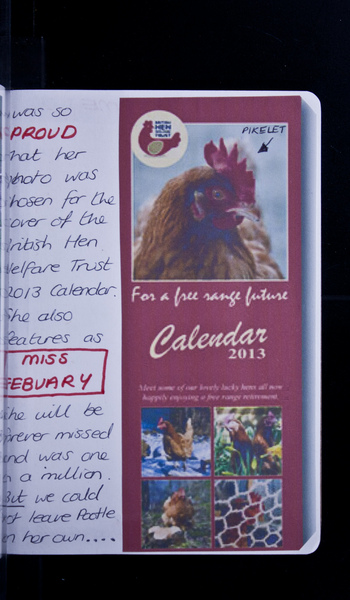 was so
PROUD
that her
photo was
chosen for the
cover of the
British Hen
Welfare Trust
2013 Calendar.
She also
features as
MISS
FEBUARY
She will be
forever missed
and was one
in a million.
But we could
not leave
on her own....
BRITISH
HEN
WELFARE
TRUST
PIKELET
For a free range future
Calendar
2013
Meet some of our lovely lucky hens all now
happily enjoying a free range retirement.